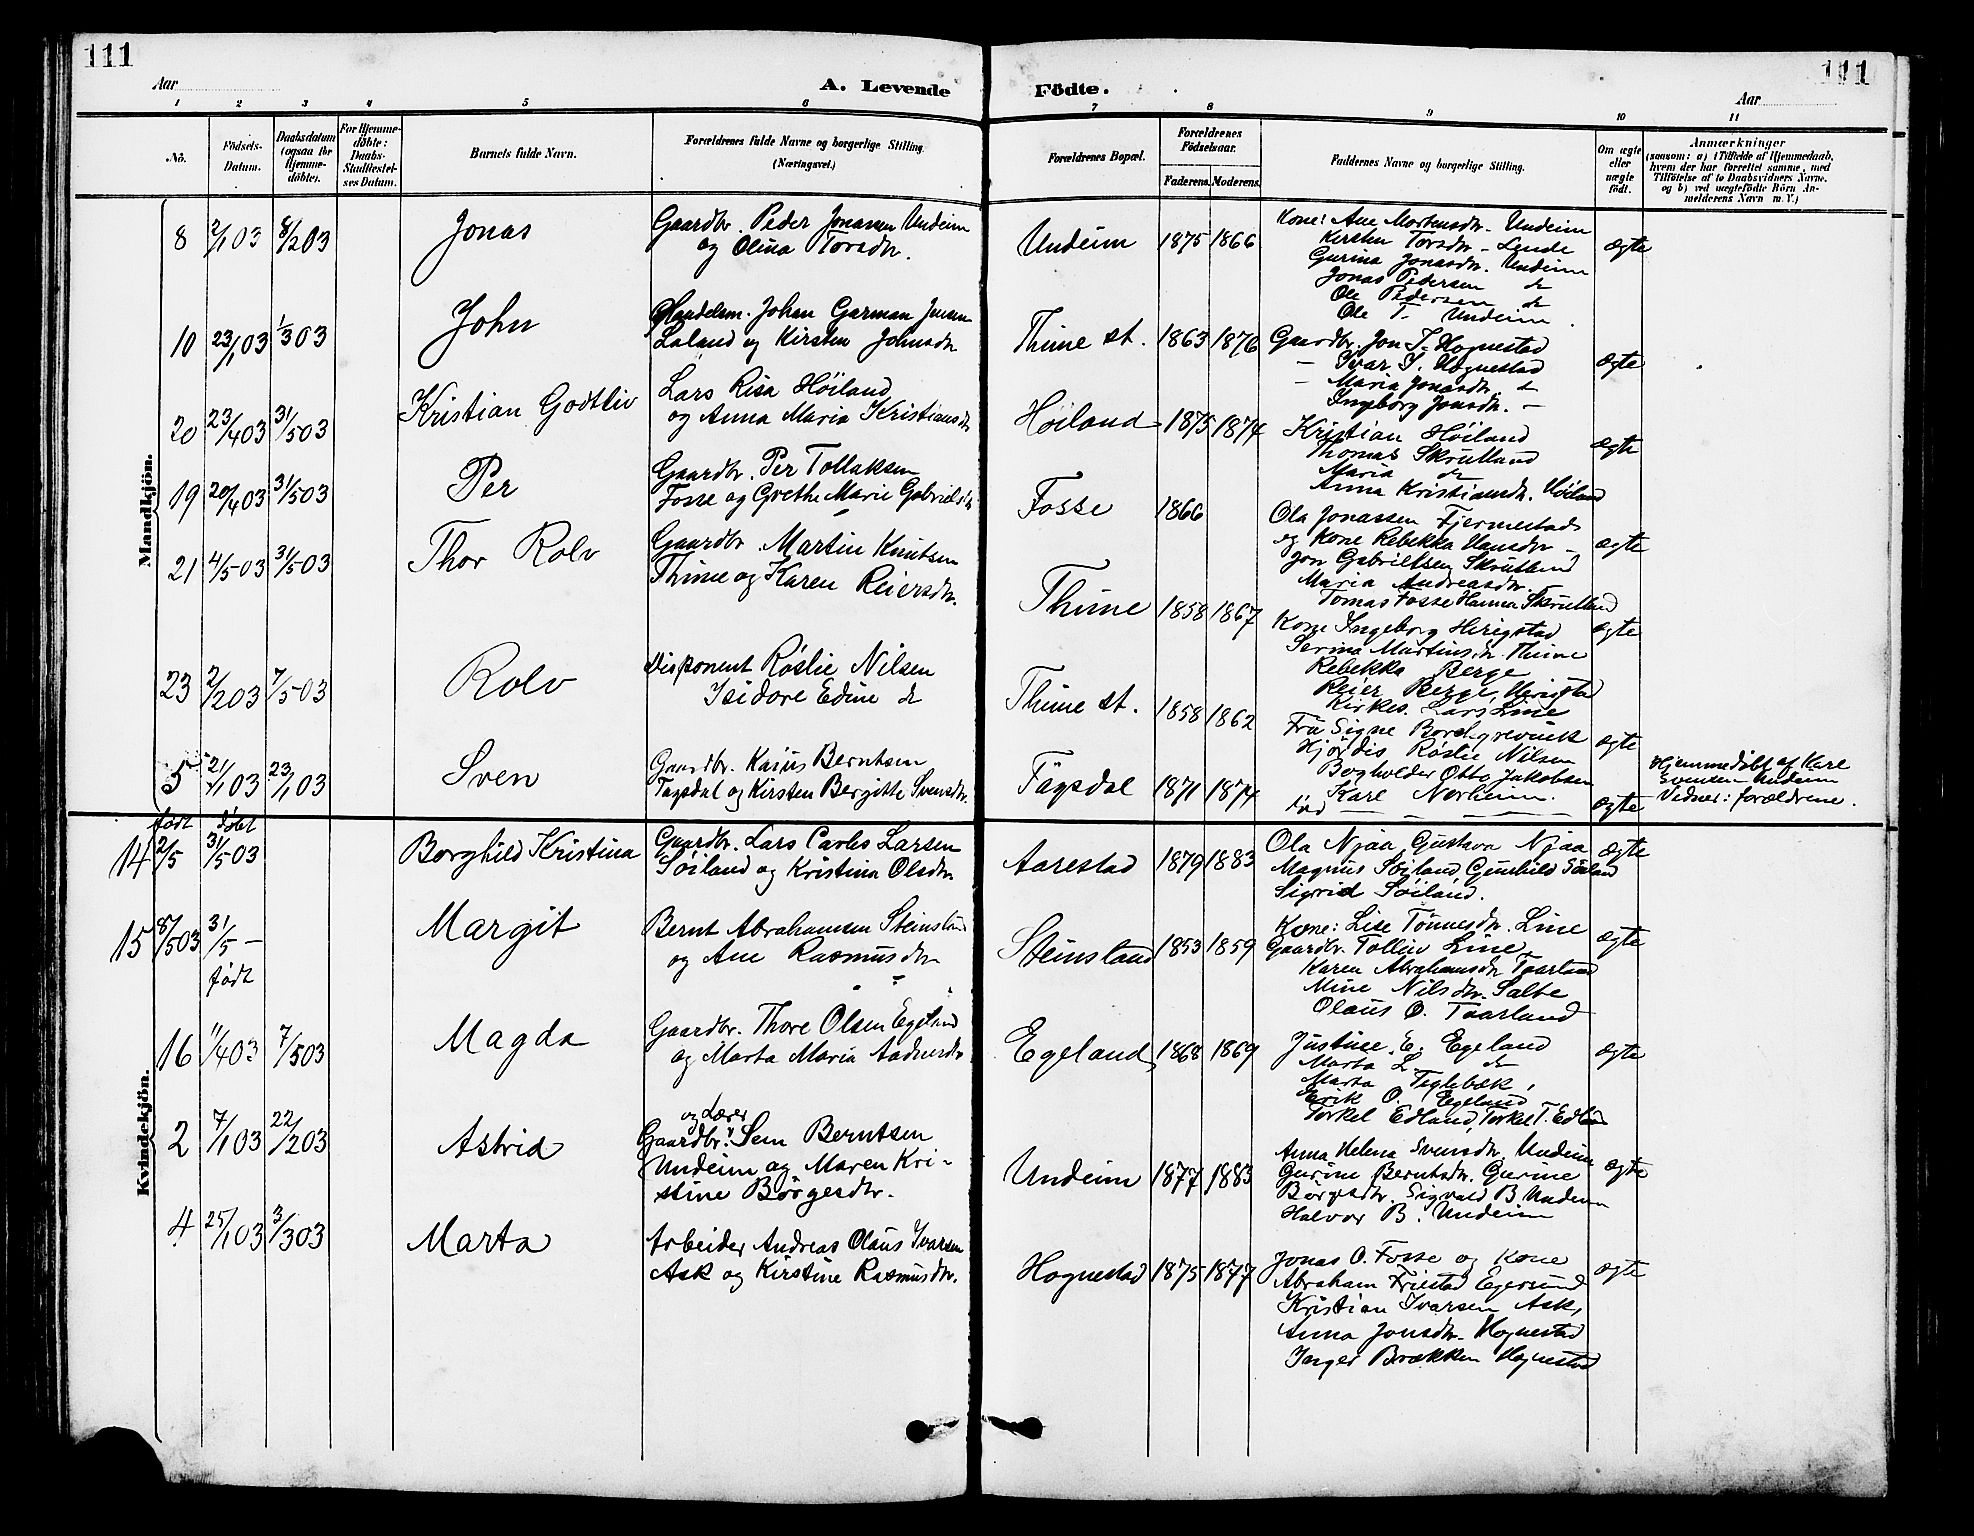 111
111
Aar
A. Levende Födte.
Aar
1 2 3 4 5 6 7 8 9 10 11
No.
Födsels-Datum.
Daabsdatum (ogsaa for Hjemme-döbte).
For Hjemme-döbte: Daabs-Stadfæstel-ses Datum.
Barnets fulde Navn.
Forældrenes fulde Navne og borgerlige Stilling. (Næringsvei.)
Forældrenes Bopæl.
Forældrenes Födselsaar.
Faderens. Moderens.
Faddernes Navne og borgerlige Stilling.
Om ægte eller uægte födt.
Anmærkninger
(saasom: a) i Tilfælde af Hjemmedaab,
hvem der har forrettet samme, med
Tilföielse af to Daabsvidners Navne.
og b) ved uægtefödte Börn An-
melderens Navn m. V.)
Mandkjön.
8 2/1 03 8/2 03 Jonas
Gaardbr. Peder Jonassen Undeim
og Olina Torsdtr.
Undeim 1875 1866
Kone: Ane Mortensdtr. Undeim
Kirsten Torsdtr - Lende
Gurina Jonasdtr. Undeim
Jonas Pedersen do
Ole Pedersen do
Ole T. Undeim.
ægte
10 23/1 03 1/3 03 John
Handelsm. Johan Garman Jensen
Laland og Kirsten Johnsdtr
Thime st. 1863 1876
Gaardbr. Jon I. Hognestad
- Ivar I. Hognestad
- Maria Jonasdtr. do
Ingeborg Jonsdtr. -
ægte
20 23/4 03 31/5 03 Kristian Godtliv
Lars Risa Höiland
og Anna Maria Kristiansdtr
Höiland 1875 1874
Kristian Höiland
Thomas Skrutland
Maria do
Anna Kristiansdtr. Höiland
ægte
19 20/4 03 31/5 03 Per
Gaardbr. Per Tollaksen
Fosse og Grethe Marie Gabrielsdtr
Fosse 1866
Ola Jonassen Fjermestad
og Kone Rebekka Hansdtr -
Jon Gabrielsen Skrutland
Maria Andreasdtr.
Tomas Fosse Hanna Skrutland
ægte
21 4/5 03 31/5 03 Thor Rolv
Gaardbr. Martin Knutsen
Thime og Karen Reiersdtr.
Thime 1858 1867
Kone Ingeborg Herigstad
Serina Martinsdtr. Thime
Rebekka Berge
Reier Berge, Herigstad
Kirkes. Lars Line
ægte
23 2/2 03 7/5 03 Rolv
Disponent Röslie Nilsen
Isidore Edine do
Thime st. 1858 1862
Fru Signe Borchgrevink
Hjördis Röslie Nilsen
Bogholder Otto Jakobsen
Karl Norheim.
ægte
5 21/1 03 23/1 03 Sven
Gaardbr. Kaius Berntsen
Tagsdal og Kirsten Bergitte Svensdtr.
Tagsdal 1871 1874
ægte
Hjemmedöbt af Karl
Svendsen Undeim
Vidner: forældrene.
Kvindekjön.
født døbt
14 2/5 31/5 03 Borghild Kristina
Gaardbr. Lars Carles Larsen
Söiland og Kristina Olsdtr.
Aarestad 1879 1883
Ola Njaa Gustava Njaa
Magnus Söiland, Gunhild Söiland
Sigrid Söiland.
ægte
15 8/5 03 31/5 - Margit
Bernt Abrahamsen Steinsland
og Ane Rasmusdtr
Steinsland 1853 1859
Kone: Lise Tönnesdtr. Line
Gaardbr. Tolleiv Line
Karen Abrahamsdtr Taarland
Mine Nilsdtr. Salte
Olaus O. Taarland
ægte
født
16 11/4 03 7/5 03 Magda
Gaardbr. Thore Olsen Egeland
og Marta Maria Aadnesdtr
Egeland 1868 1869
Justine E. Egeland
Marta L. do
Marta Teglebæk,
Erik O. Egeland
Torkel Edland, Torkel T. Edland
ægte
2 7/1 03 22/2 03 Astrid
og Lærer
Gaardbr. Sem Berntsen
Undeim og Maren Kri-
stine Börgesdtr.
Undeim 1877 1883
Anna Helena Svensdtr, Undeim
Gurine Berntsdtr. Gurine
Börgesdtr. Sigvald B Undeim
Halvor B. Undeim
ægte
4 25/1 03 3/3 03 Marta
Arbeider Andreas Olaus Ivarsen
Ask og Kirstine Rasmusdtr.
Hognestad 1875 1877
Jonas O. Fosse og Kone
Abraham Friestad Egersund
Kristian Ivarsen Ask,
Anna Jonsdtr. Hognestad
Inger Brækken Hognestad
ægte